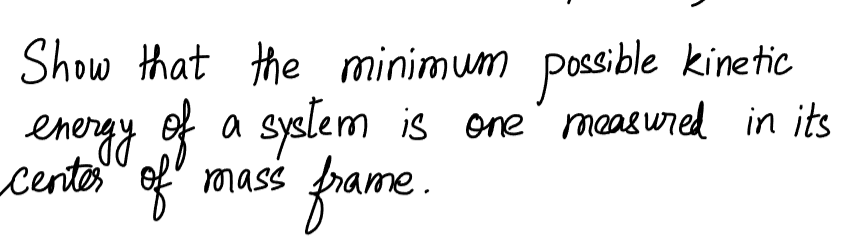 Show that the minimum possible kinetic
energy of a system is one measured in its
center of mass frame.